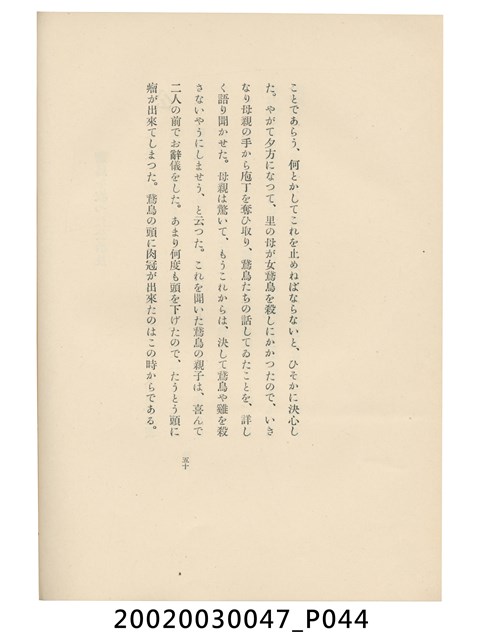 ことであらう、何とかしてこれを止めねばならないと、ひそかに決心し
た。やがて夕方になつて、里の母が女鵞鳥を殺しにかかつたので、いき
なり母親の手から庖丁を奪ひ取り、鵞鳥たちの話してゐたことを、詳し
く語り聞かせた。母親は驚いて、もうこれからは、決して鵞鳥や雞を殺
さないやうにしませう、と云つた。これを聞いた鵞鳥の親子は、喜んで
二人の前でお辭儀をした。あまり何度も頭を下げたので、たうとう頭に
瘤が出來てしまつた。鵞鳥の頭に肉冠が出來たのはこの時からである。
五十
20020030047_P044